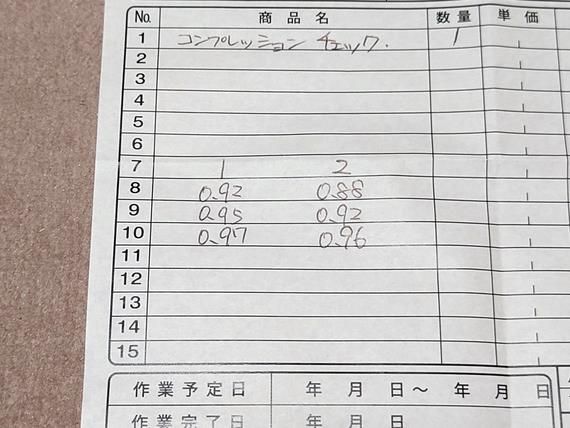 No. 商品名 数量 単価
1 コンプレッション チェック. 1
2
3
4
5
6
7 1 2
8 0.92 0.88
9 0.95 0.92
10 0.97 0.96
11
12
13
14
15
作業予定日 年 月 日～ 年 月 日
作業完了日 年 月 日